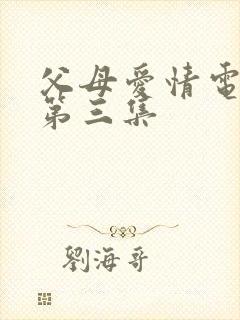 父母愛情電
第三集
劉海哥